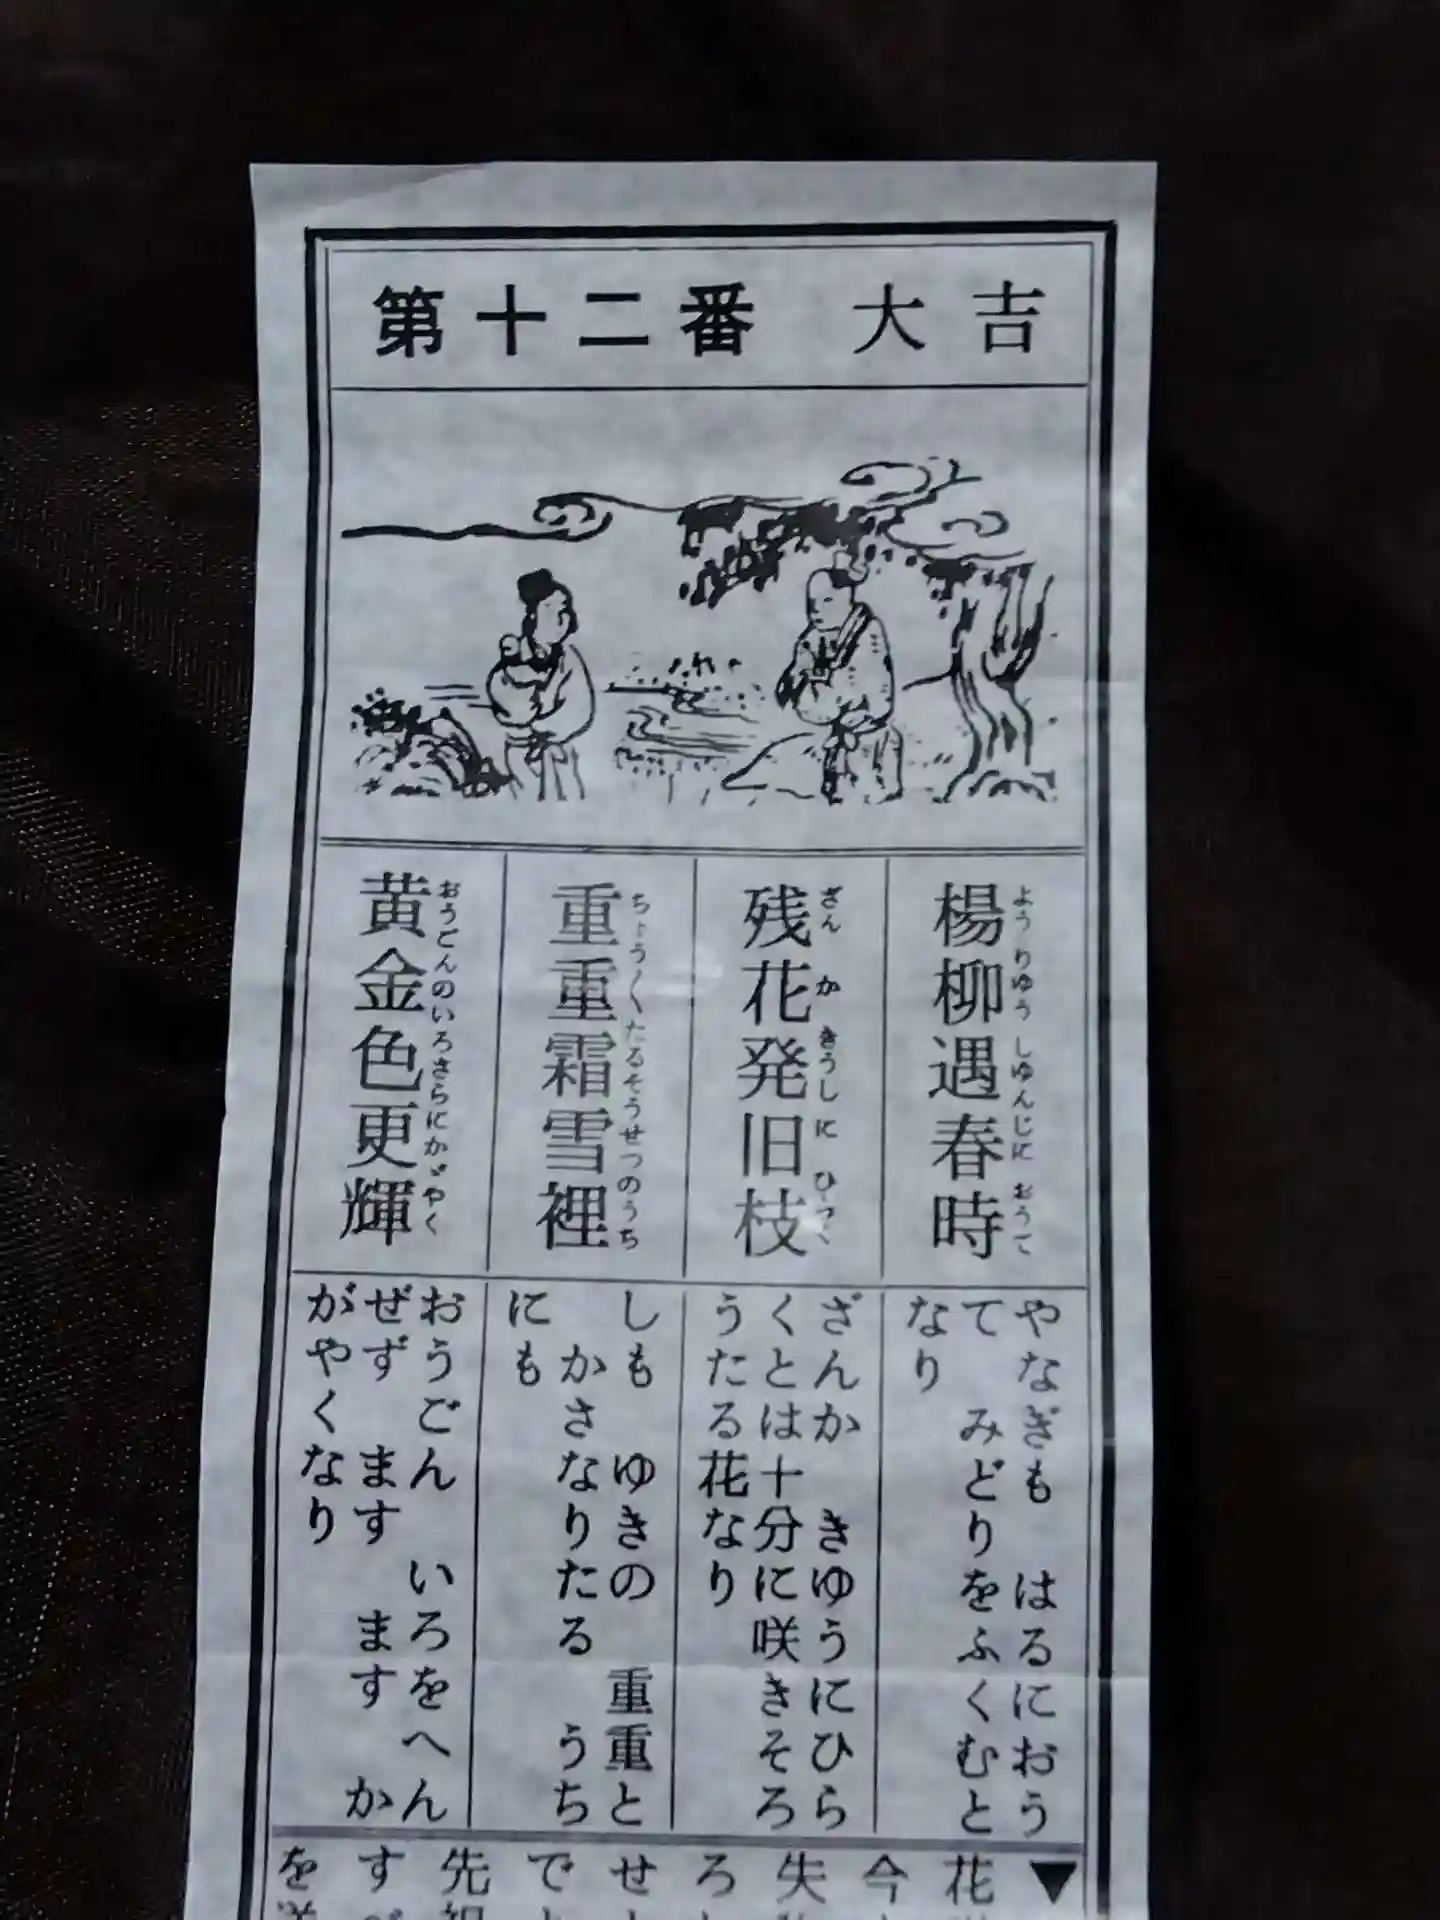 第十二番 大吉
楊柳遇春時
ようりゆうしゆんじにおうて
残花発旧枝
ざんかきうしにひらく
重重霜雪裡
ちょう〱たるそうせつのうち
黄金色更輝
おうごんのいろさらにかゞやく
やなぎも はるにおう
て みどりをふくむと
なり
ざんか きゆうにひら
くとは十分に咲きそろ
うたる花なり
しも ゆきの 重重と
かさなりたる うち
にも
おうごん いろをへん
ぜず ます ます か
がやくなり
▼
花
今
失
ろ
せ
で
先
す
を